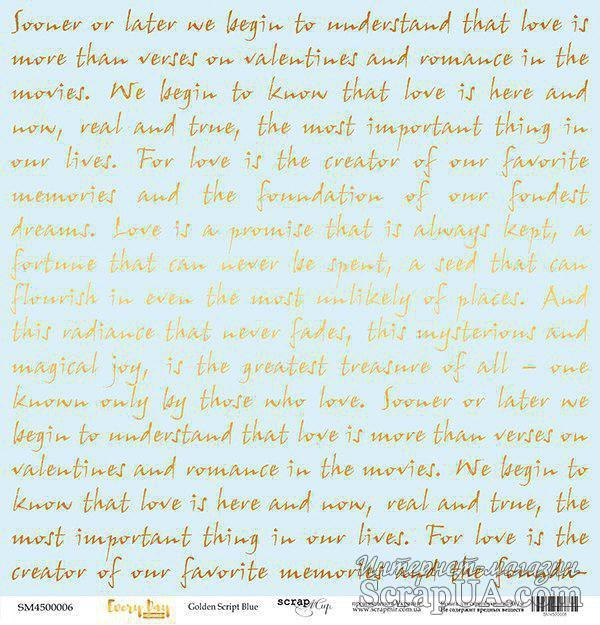 Sooner or later we begin to understand that love is
more than verses on valentines and romance in the
movies. We begin to know that love is here and
now, real and true, the most important thing in
our lives. For love is the creator of our favorite
memories and the foundation of our fondest
dreams. Love is a promise that is always kept, a
fortune that can never be spent, a seed that can
flourish in even the most unlikely of places. And
this radiance that never fades, this mysterious and
magical joy, is the greatest treasure of all – one
known only by those who love. Sooner or later we
begin to understand that love is more than verses on
valentines and romance in the movies. We begin to
know that love is here and now, real and true, the
most important thing in our lives. For love is the
creator of our favorite memories and the founda-
Интернет-магазин
ScrapUA.com
SM4500006 Every Day Golden Script Blue scrap Cup
не содержит вредных веществ